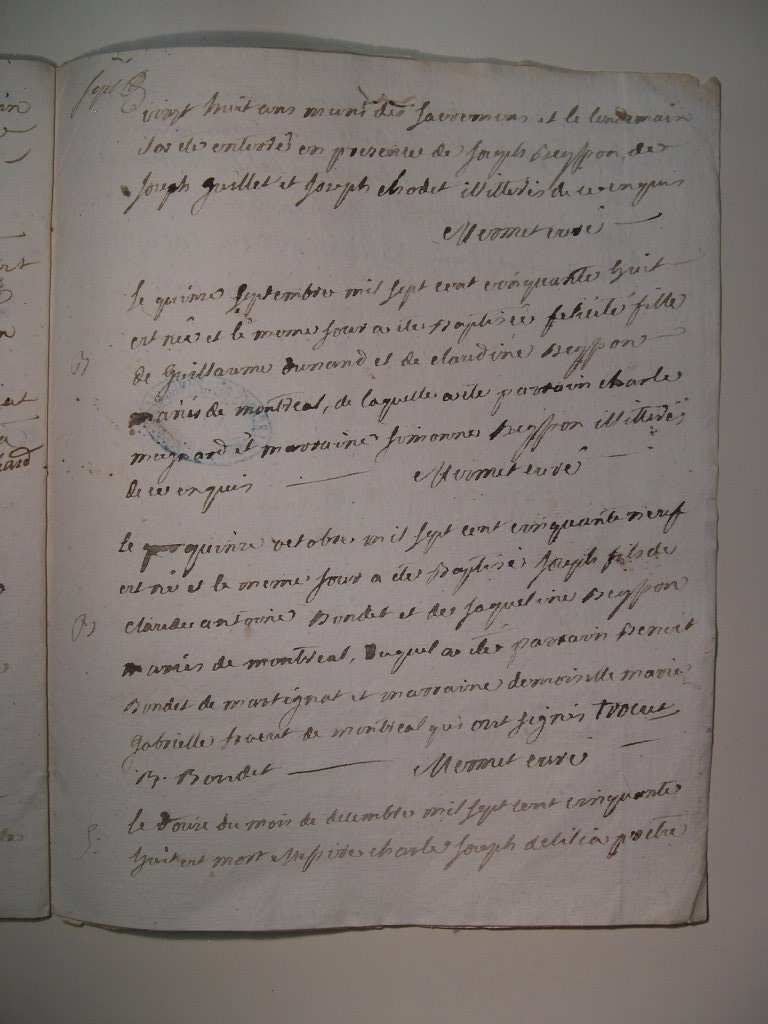 vingt huit ans muni des sacremens et le lendemain
a ete enterré en presence de Joseph Beysson, de
Joseph Guillet et Joseph Chodet illiterés de ce enquis
Mermet curé
le quinze septembre mil sept cent cinquante huit
est née et le meme jour a ete Baptisée felicité fille
B
de Guillaume Dunand et de claudine Beysson
mariés de montreal, de laquelle a ete parrain charle
et marraine Simonne Beysson illiterés
de ce enquis Mermet curé
le quinze octobre mil sept cent cinquante neuf
est né et le meme jour a ete Baptisé Joseph fils de
B
claude antoine Bondet et de Jaqueline Beysson
mariés de montreal, Duquel a ete parrain Benoit
Bondet de martignat et marraine demoiselle marie
Gabrielle trocut de montreal qui ont signés trocut
B. Bondet Mermet curé
S.
le douze du mois de decembre mil sept cent cinquante
huit est mort charle Joseph delilia